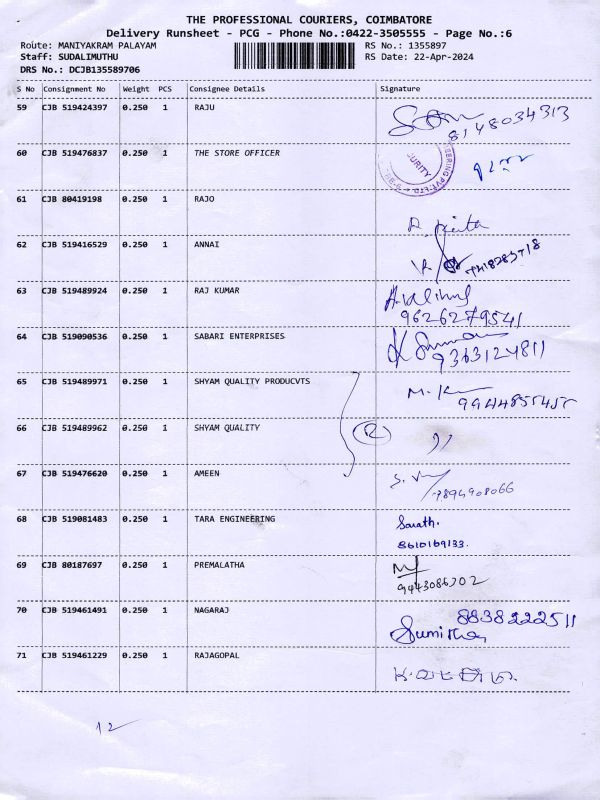 THE PROFESSIONAL COURIERS, COIMBATORE
Delivery Runsheet - PCG - Phone No.:0422-3505555 - Page No.:6
Route: MANIYAKRAM PALAYAM RS No.: 1355897
Staff: SUDALIMUTHU RS Date: 22-Apr-2024
DRS No.: DCJB135589706
S No Consignment No Weight PCS Consignee Details Signature
59 CJB 519424397 0.250 1 RAJU
8148034313
60 CJB 519476837 0.250 1 THE STORE OFFICER
61 CJB 80419198 0.250 1 RAJO
62 CJB 519416529 0.250 1 ANNAI
63 CJB 519489924 0.250 1 RAJ KUMAR
9626279541
64 CJB 519090536 0.250 1 SABARI ENTERPRISES
9363124811
65 CJB 519489971 0.250 1 SHYAM QUALITY PRODUCVTS
66 CJB 519489962 0.250 1 SHYAM QUALITY
67 CJB 519476620 0.250 1 AMEEN
68 CJB 519081483 0.250 1 TARA ENGINEERING Sarath.
8610169133.
69 CJB 80187697 0.250 1 PREMALATHA
9443086202
70 CJB 519461491 0.250 1 NAGARAJ 8838222511
71 CJB 519461229 0.250 1 RAJAGOPAL
12